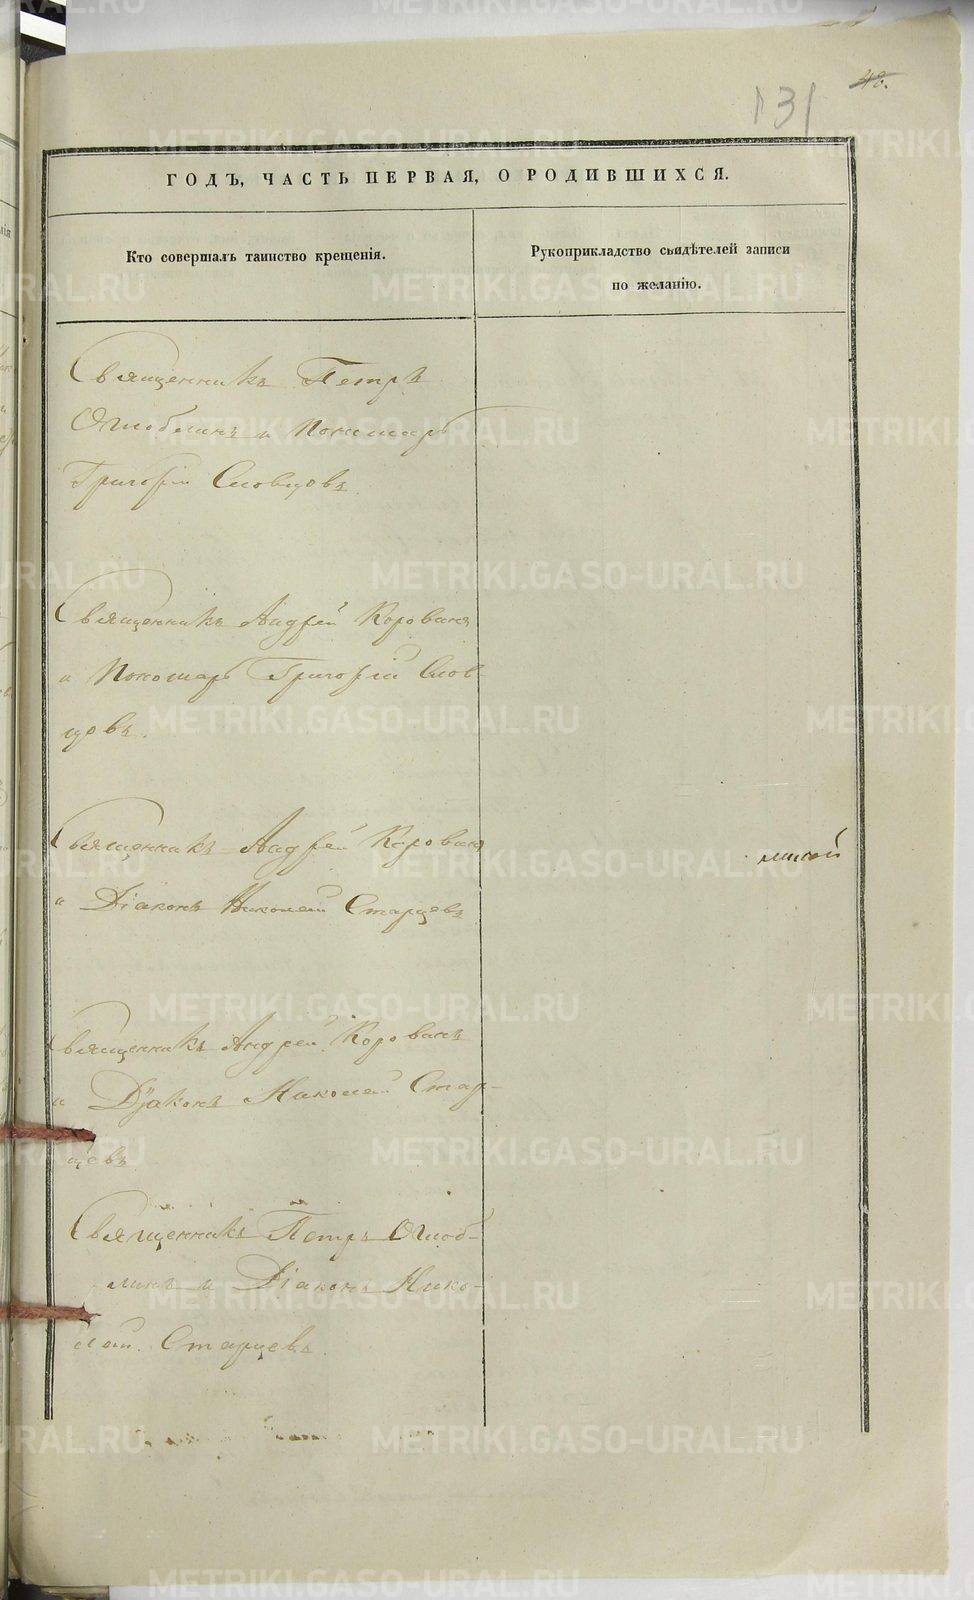 131
48.
ГОДЪ, ЧАСТЬ ПЕРВАЯ, О РОДИВШИХСЯ.
Кто совершалъ таинство крещенія.
Рукоприкладство свидѣтелей записи
по желанію.
Священникъ Петръ
Оглоблинъ и Пономарь
Григорій Словцовъ
Священникъ Андрей Корованъ
и Пономарь Григорій Слов-
цовъ.
Священникъ Андрей Корованъ
и Діаконъ Николай Старцевъ
Священникъ Андрей Корованъ
и Діаконъ Николай Стар-
цевъ
Священникъ Петръ Оглоб-
линъ и Діаконъ Нико-
лай Старцевъ.
METRIKI.GASO-URAL.RU